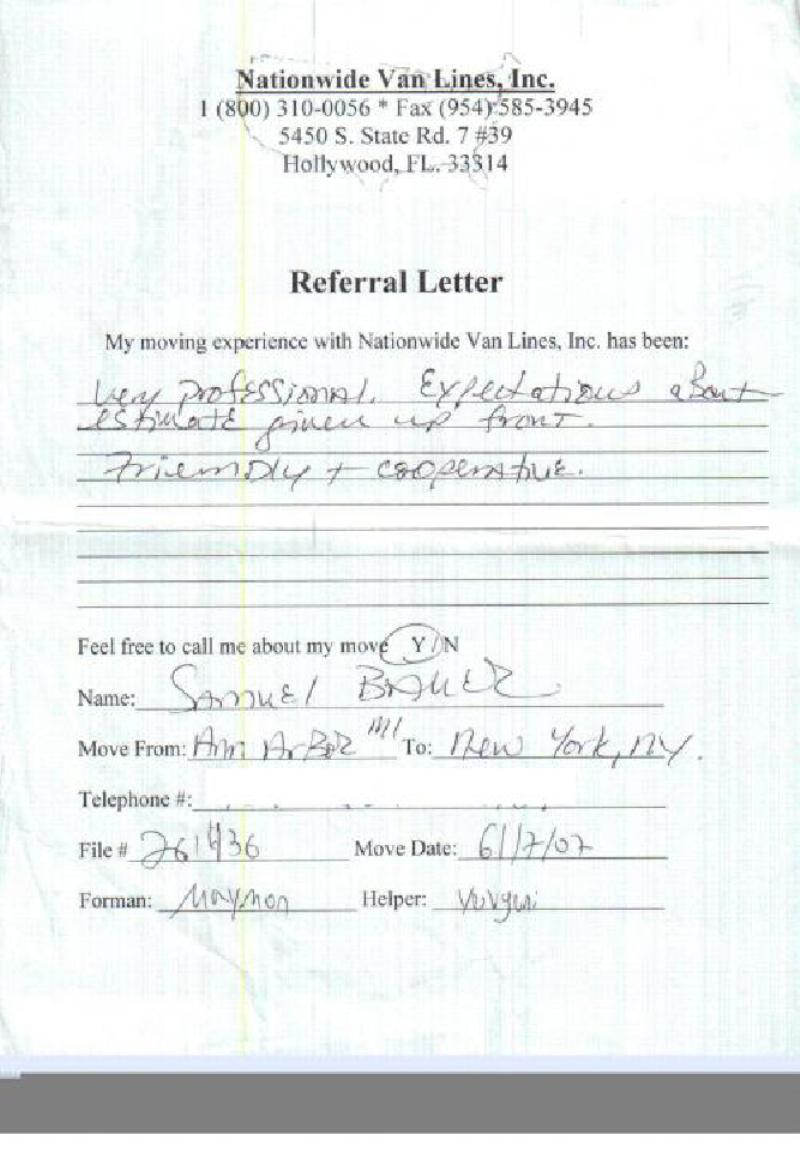 Nationwide Van Lines, Inc.
1 (800) 310-0056 * Fax (954) 585-3945
5450 S. State Rd. 7 #39
Hollywood, FL. 33314
Referral Letter
My moving experience with Nationwide Van Lines, Inc. has been:
Very professional. Expectations about
estimate given up front.
Friendly + cooperative.
Feel free to call me about my move Y/N
Name: Samuel Bauer
Move From: Ann Arbor MI To: New York, NY.
Telephone #:
File # 261436 Move Date:
Forman: Maymon Helper: